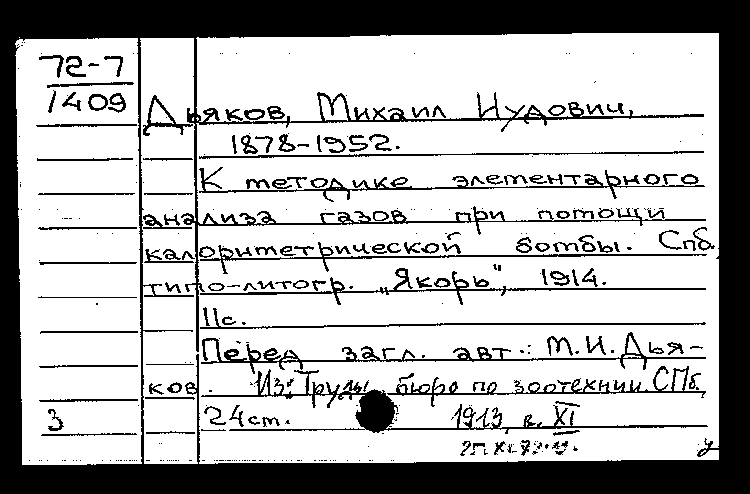 72-7
1409
Дьяков, Михаил Иудович,
1878-1952.
К методике элементарного
анализа газов при помощи
калориметрической бомбы. Спб,
типо-литогр. „Якорь", 1914.
11с.
Перед загл. авт.: М.И.Дья-
ков. Из: Труды бюро по зоотехнии. СПб,
3 24см. 1913, в. XI
у